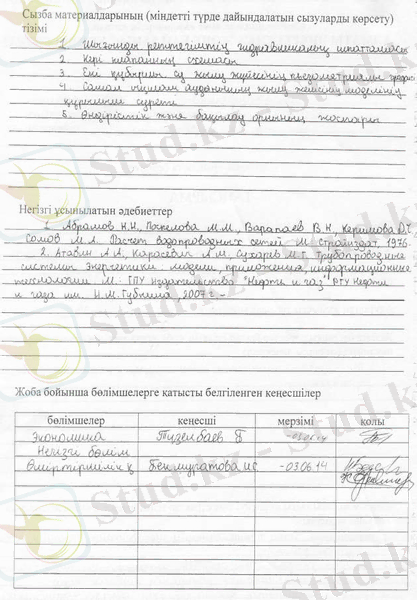 Сызба материалдарының (міндетті түрде дайындалатын сызуларды көрсету)
тізімі
1. Шығынды реттегіштің гидравликалық
2. Кері клапанның схемасы
3. Екі құбырлы су жылу жүйесінің пьезометриялық графигі
4. Самал ықшам ауданының жылу желісінің моделінің
құрылымы суреті
5. Өндірістік және бақылау орнының жоспары
Негізгі ұсынылатын әдебиеттер
1. Абрамов Н.Н., Поспелова М.М., Варапаев В.Н., Керимова Д.Т.
Сомов М.А. Расчет водопроводных сетей М. Стройиздат, 1976.
2. Атавин А.А., Карасевич А.М., Сухарев М.Г. Трубопроводные
системы энергетики модели, приложения, информационные
технологии М. ГПУ Издательство "Нефть и газ" РГУ Нефти
и газа им. И.М. Губкина, 2007 г. -
Жоба бойынша бөлімшелерге қатысты белгіленген кеңесшілер
бөлімшелер кеңесші мерзімі қолы
Экономика Тузелбаев Б -03.06.14
Негізгі бөлім
Өміртіршілік қ Бекмуратова -03.06.14
Stud.kz - Stud.kz